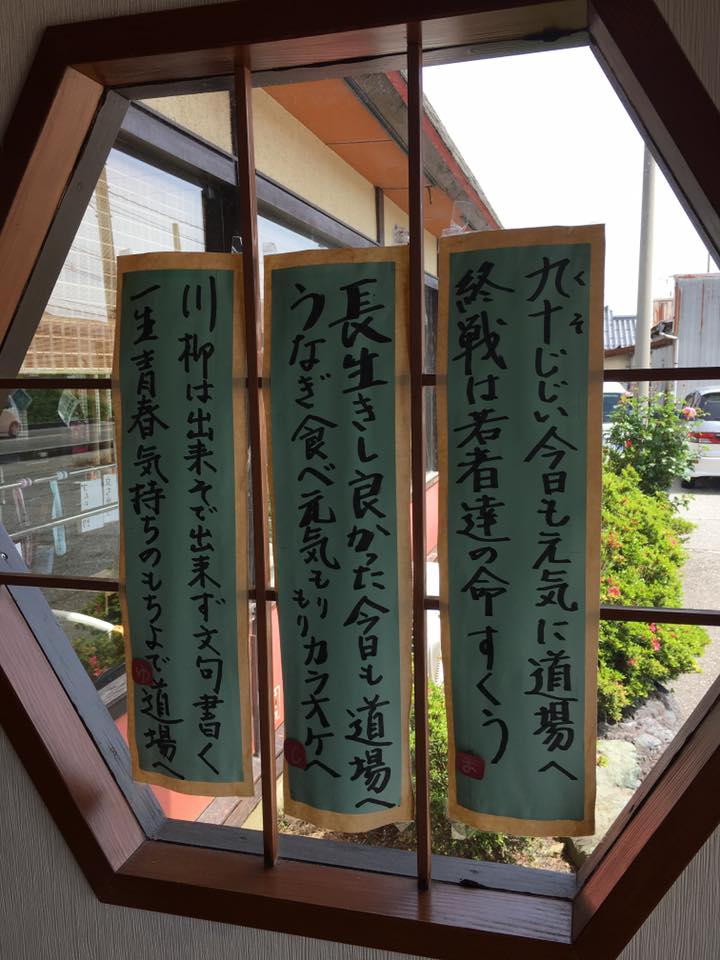 九十じじい今日も元気に道場へ
くそ
終戦は若者達の命すくう
ま
長生きし良かった今日も道場へ
うなぎ食べ元気もりもりカラオケへ
し
川柳は出来そで出来ず文句書く
一生青春気持ちのもちよで道場へ
ゆ